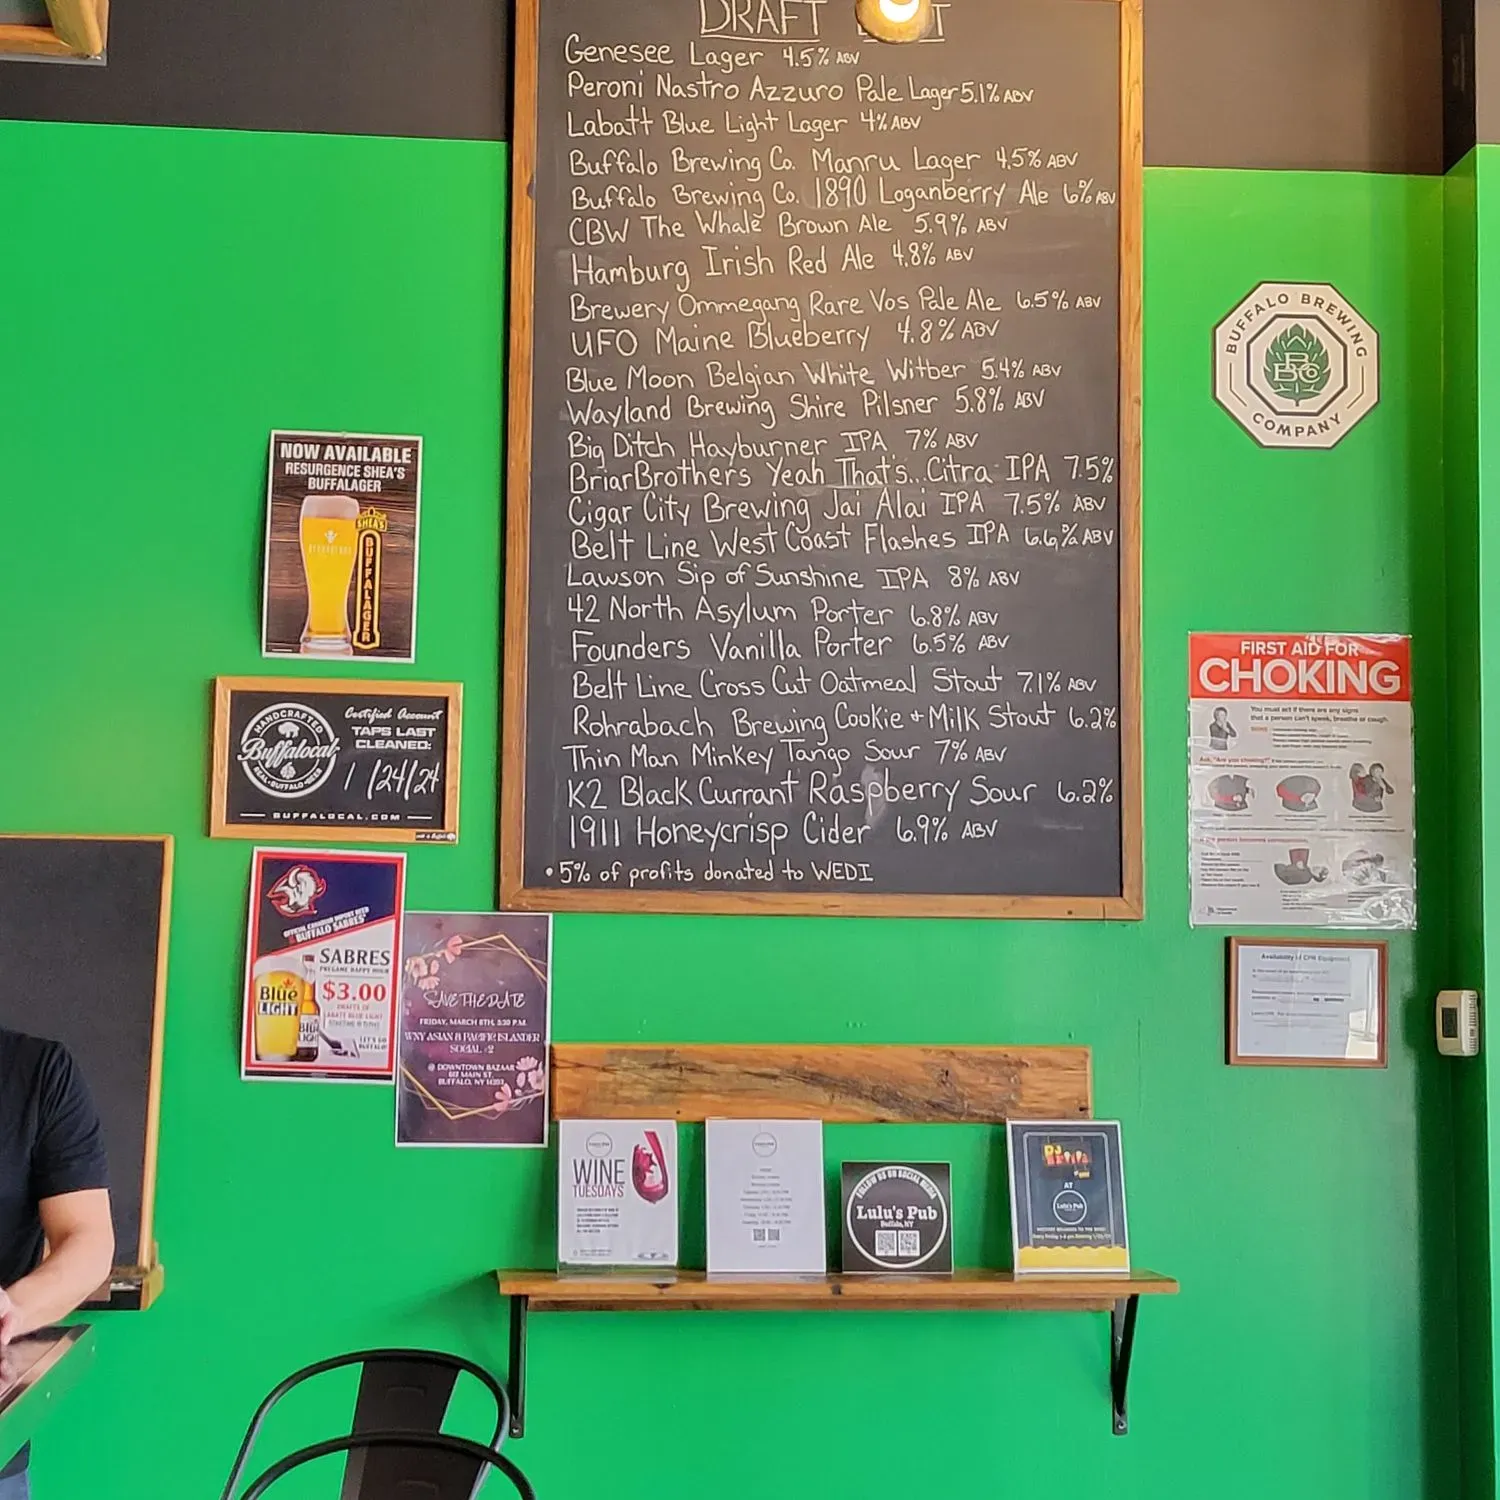 DRAFT
Genesee Lager 4.5% ABV
Peroni Nastro Azzuro Pale Lager 5.1% ABV
Labatt Blue Light Lager 4% ABV
Buffalo Brewing Co. Manru Lager 4.5% ABV
Buffalo Brewing Co. 1890 Loganberry Ale 6% ABV
CBW The Whale Brown Ale 5.9% ABV
Hamburg Irish Red Ale 4.8% ABV
Brewery Ommegang Rare Vos Pale Ale 6.5% ABV
UFO Maine Blueberry 4.8% ABV
Blue Moon Belgian White Witber 5.4% ABV
Wayland Brewing Shire Pilsner 5.8% ABV
Big Ditch Hayburner IPA 7% ABV
BriarBrothers Yeah That's... Citra IPA 7.5%
Cigar City Brewing Jai Alai IPA 7.5% ABV
Belt Line West Coast Flashes IPA 6.6% ABV
Lawson Sip of Sunshine IPA 8% ABV
42 North Asylum Porter 6.8% ABV
Founders Vanilla Porter 6.5% ABV
Belt Line Cross Cut Oatmeal Stout 7.1% ABV
Rohrabach Brewing Cookie + Milk Stout 6.2%
Thin Man Minkey Tango Sour 7% ABV
K2 Black Currant Raspberry Sour 6.2%
1911 Honeycrisp Cider 6.9% ABV
• 5% of profits donated to WEDI
BUFFALO BREWING
BBCo
COMPANY
NOW AVAILABLE
RESURGENCE SHEA'S
BUFFALAGER
SHEA'S
BUFFALAGER
HANDCRAFTED
Buffalocal
REAL·BUFFALO·BEER
Certified Account
TAPS LAST
CLEANED:
1/24/24
BUFFALOCAL.COM
OFFICIAL CANADIAN IMPORT BEER
BUFFALO SABRES
SABRES
PREGAME HAPPY HOUR
$3.00
DRAFTS OF
LABATT BLUE LIGHT
LET'S GO
BUFFALO!
Blue
LIGHT
SAVE THE DATE
FRIDAY, MARCH 8TH, 5:30 P.M.
WNY ASIAN & PACIFIC ISLANDER
SOCIAL #2
@ DOWNTOWN BAZAAR
617 MAIN ST.
BUFFALO, NY 14203
FIRST AID FOR
CHOKING
You must act if there are any signs
that a person can't speak, breathe or cough.
Ask, "Are you choking?"
Availability of CPR Equipment
WINE
TUESDAYS
FOLLOW US ON SOCIAL MEDIA
Lulu's Pub
Buffalo, NY
DJ
AT
Lulu's Pub